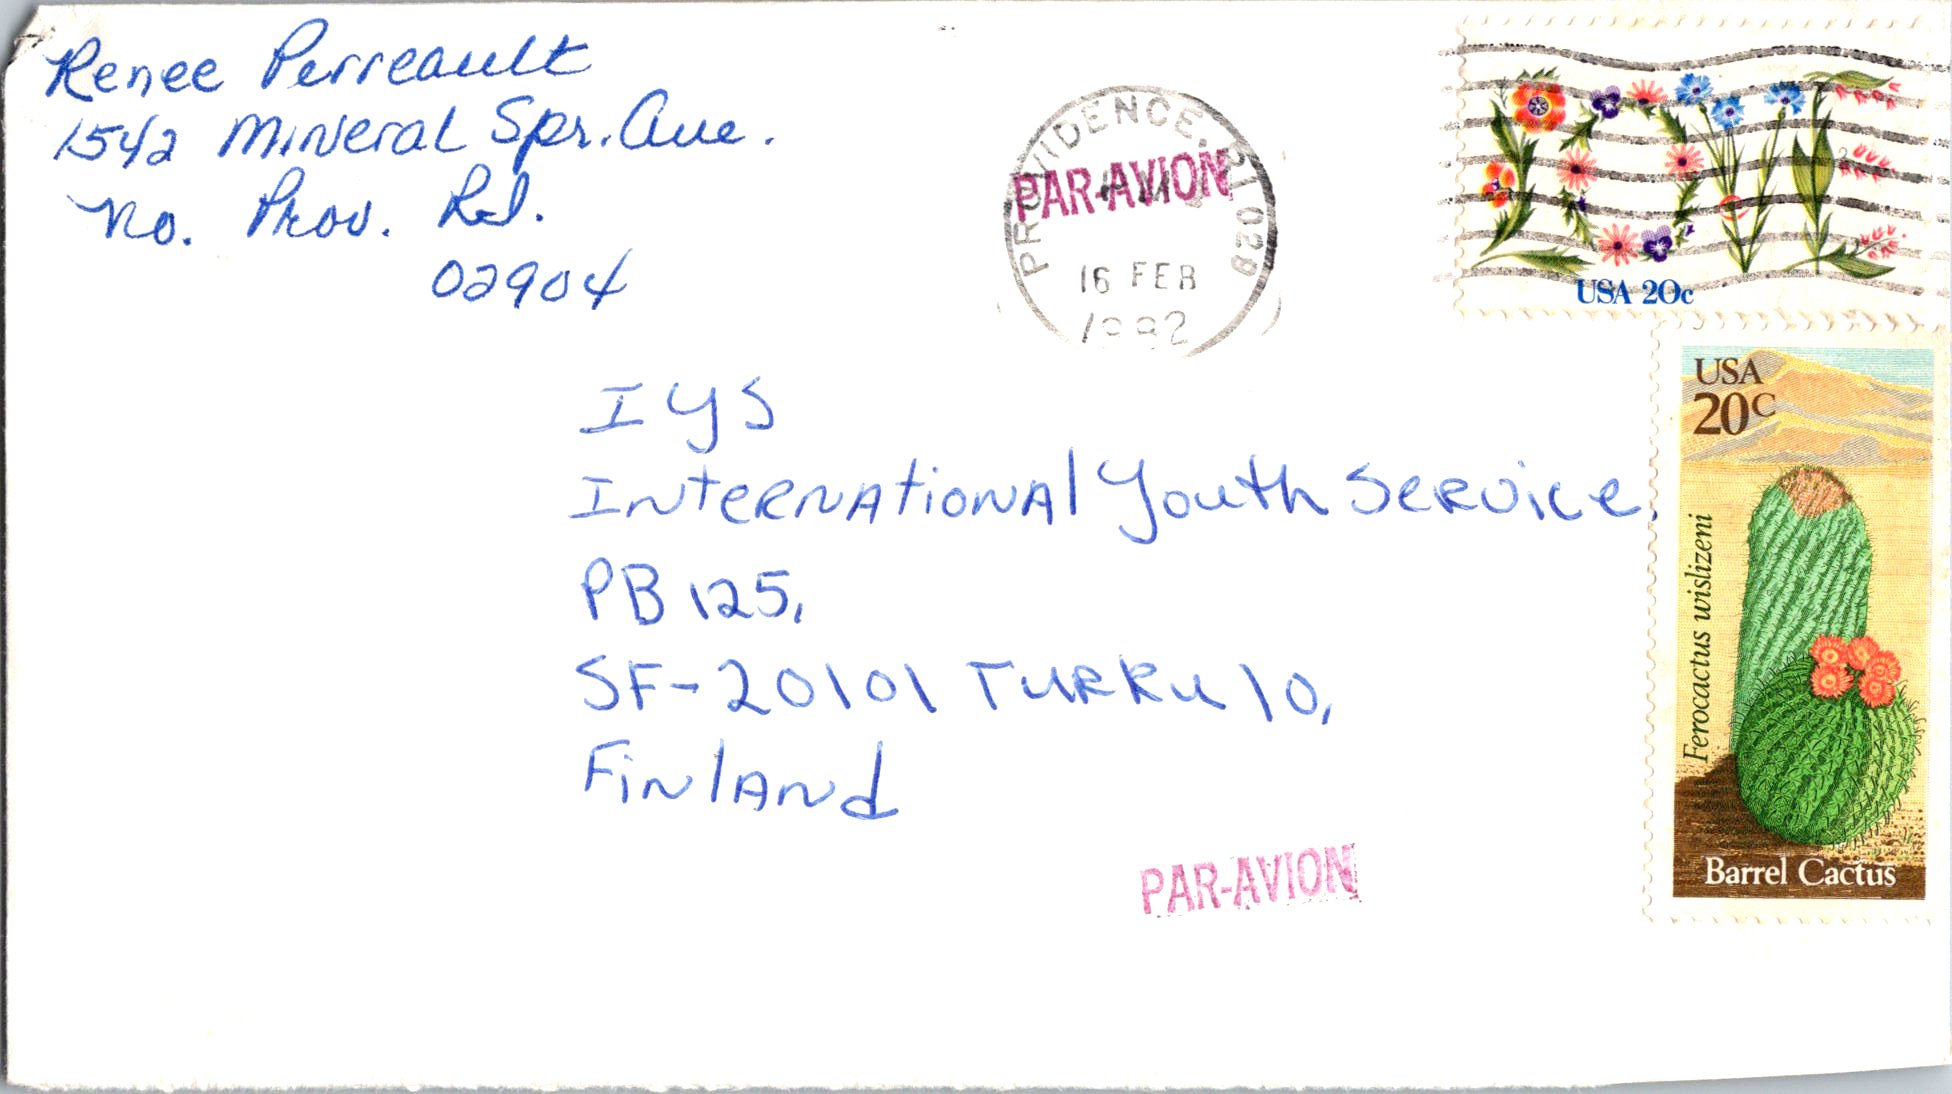 Renee Perreault
1542 Mineral Spr. Ave.
No. Prov. R.I.
02904
PROVIDENCE, RI 028
PAR-AVION
16 FEB
1982
LOVE
USA 20c
USA
20c
Ferocactus wislizeni
Barrel Cactus
IYS
International Youth Service
PB 125,
SF-20101 TURKU 10,
Finland
PAR-AVION